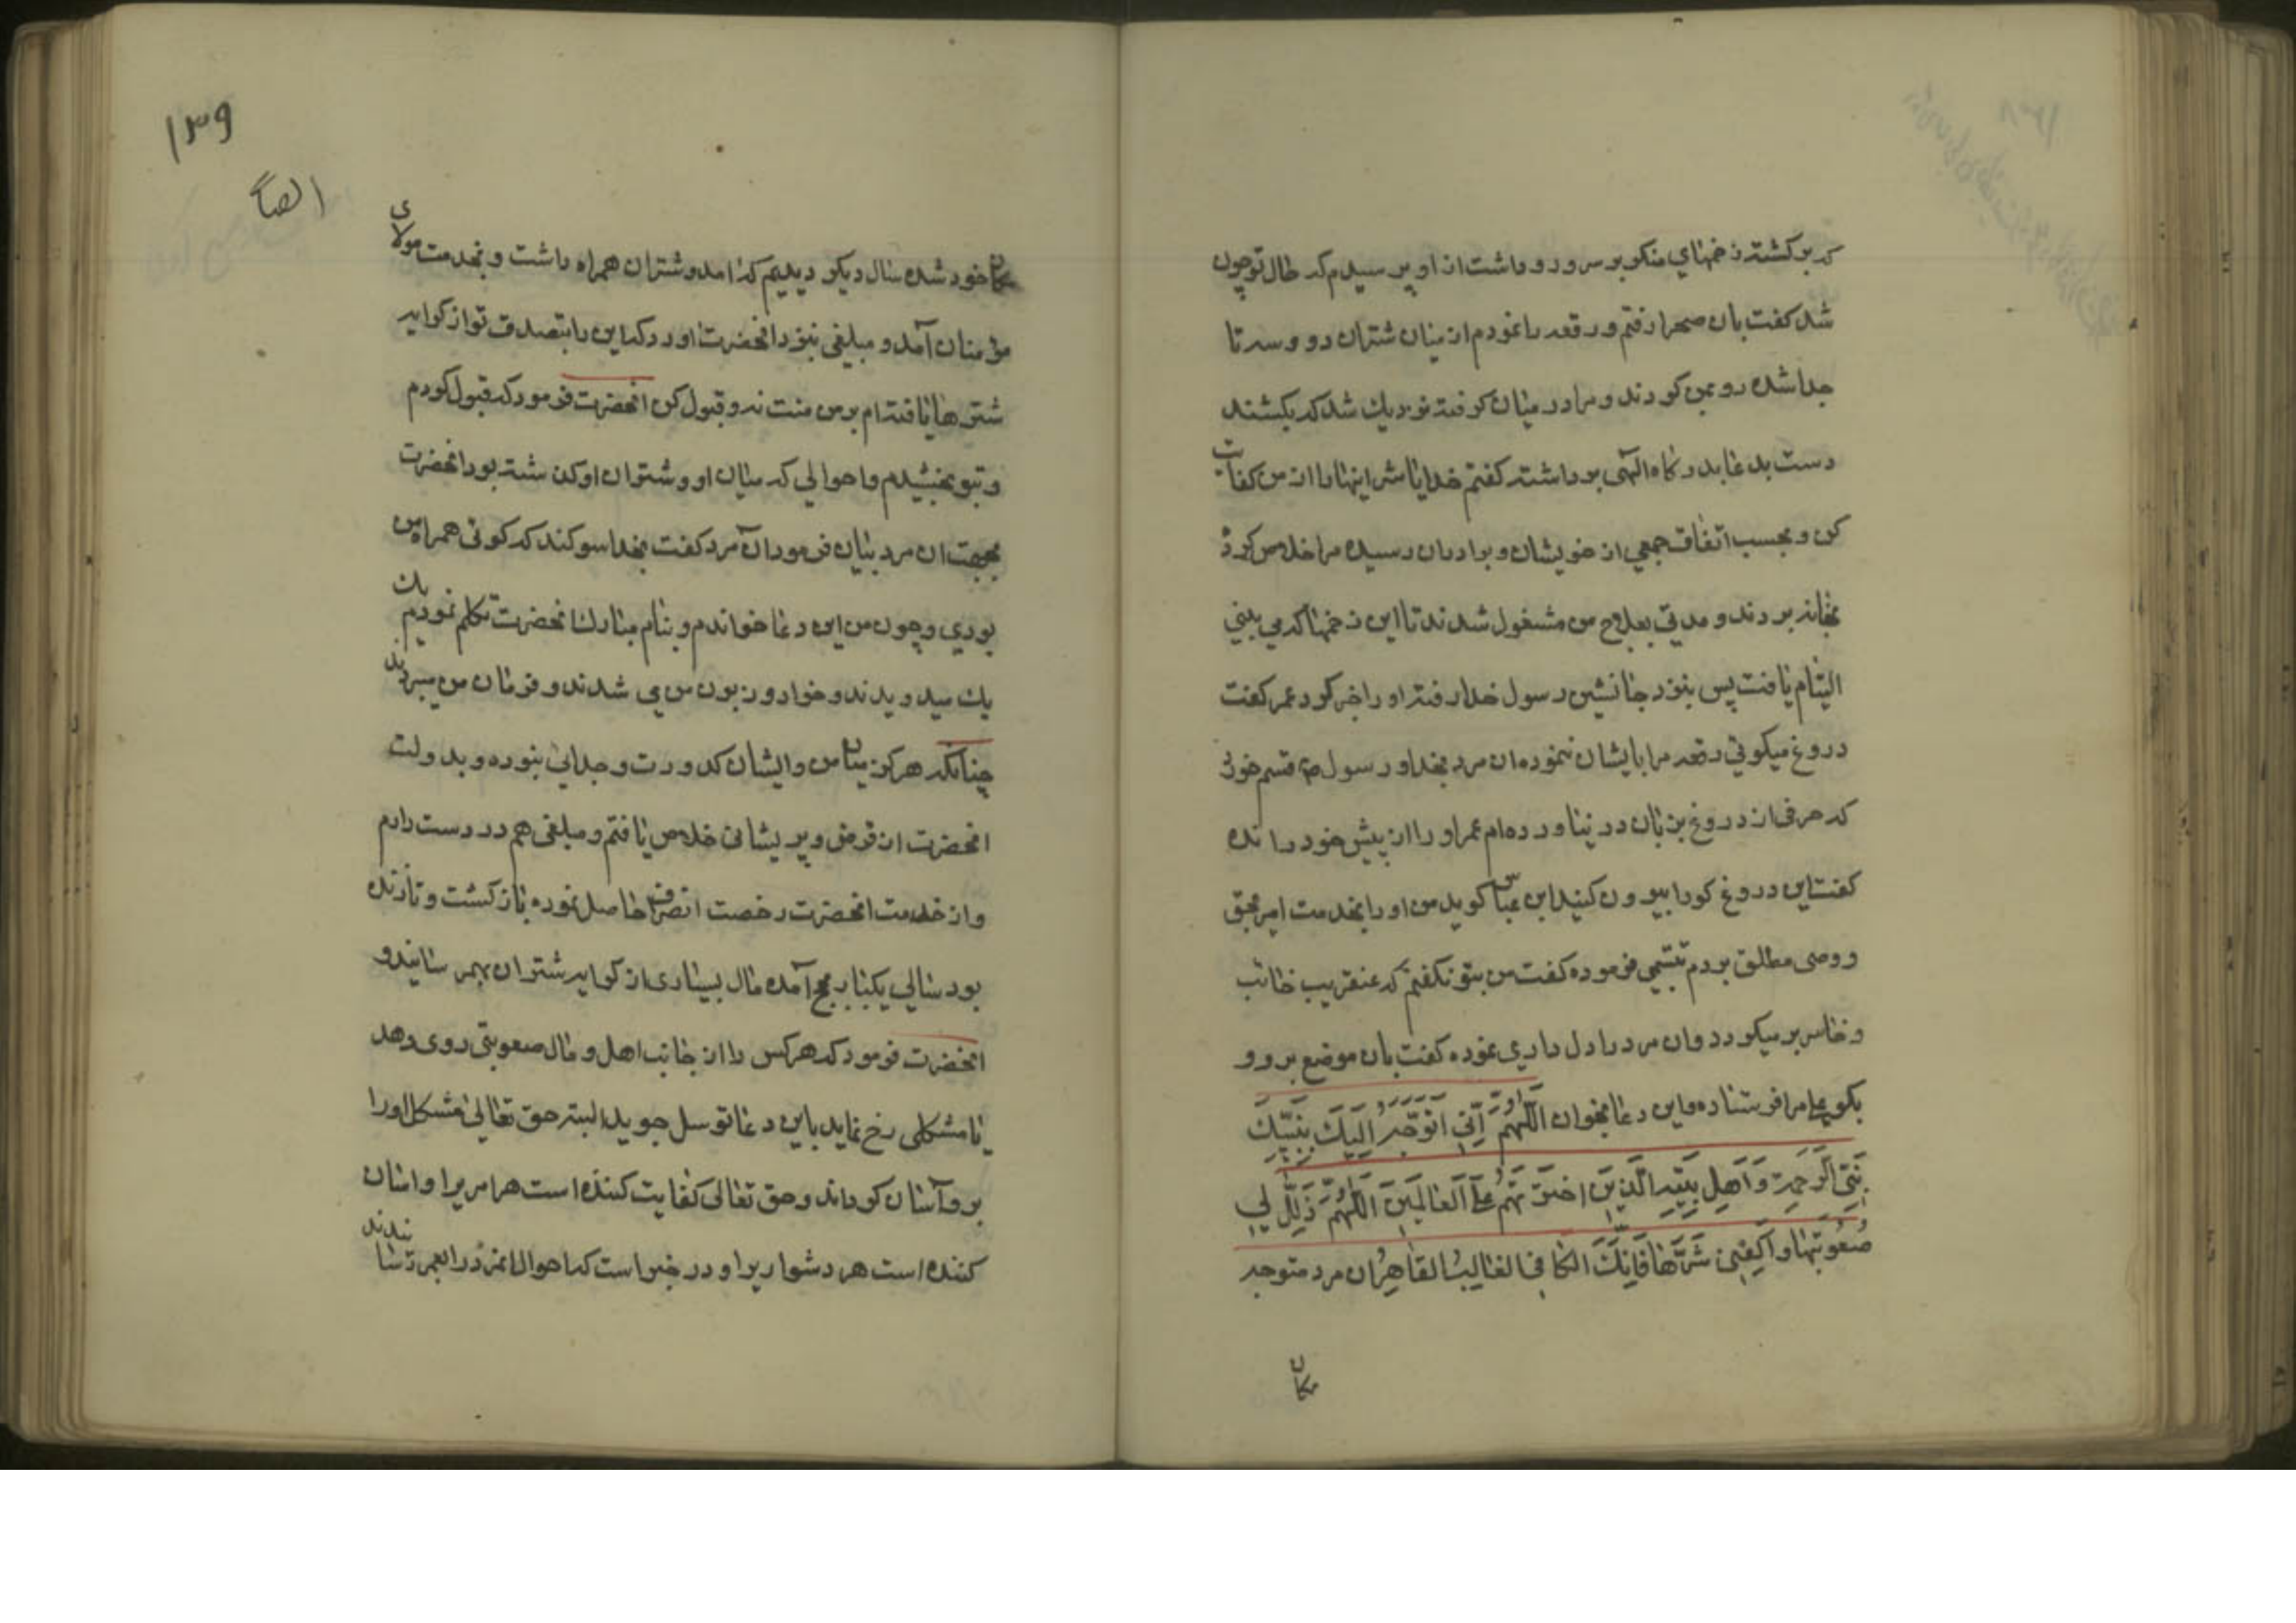 که برگشته زخمهای منکر بر سر و رو داشت از او پرسیدم که حال تو چون
شد گفت بآن صحرا رفتم و رقعه را نمودم از میان شتران دو و سه تا
جدا شده رو بمن کردند و مرا در میان گرفته نزدیک شد که بکشند
دست بدعا بدرگاه الهی برداشته گفتم خدایا شر اینها را از من کفایت
کن و بحسب اتفاق جمعی از خویشان و برادران رسیده مرا خلاص کرده
بخانه بردند و مدتی بعلاج من مشغول شدند تا این زخمها که می بینی
التیام یافت پس بنزد جانشین رسول خدا رفته او را خبر کرد عمر گفت
دروغ میگوئی رقعه مرا بایشان ننموده ان مرد بخدا و رسول ص قسم خورد
که حرفی از دروغ بزبان در نیاورده ام عمر او را از پیش خود رانده
گفت این دروغ گو را بیرون کنید ابن عباس گوید من او را بخدمت امیر بحق
و وصی مطلق بردم تبسمی فرموده گفت من بتو نگفتم که عنقریب خائب
و خاسر بر میگردد و ان مرد را دل داری نموده گفت بآن موضع برو و
بگو علی مرا فرستاده و این دعا بخوان اللهم انی اتوجه الیک بنبیک
نبی الرحمة و اهل بیته الذین اخترتهم علی العالمین اللهم ذلل لی
صعوبتها و اکفنی شرها فانک الکافی الغالب القاهر ان مرد متوجه
مکان
۱۳۹
ایضا
مکان خود شده سال دیگر دیدیم که امد و شتران همراه داشت و بخدمت مولای
مؤمنان آمد و مبلغی بنزد انحضرت اورد که این را بتصدق تو از کرایه
شترها یافته ام بر من منت نه و قبول کن انحضرت فرمود که قبول کردم
و بتو بخشیدم و احوالی که میان او و شتران او گذشته بود انحضرت
بجهت ان مرد بیان فرمود ان مرد گفت بخدا سوگند که گوئی همراه من
بودی و چون من این دعا خواندم و بنام مبارک انحضرت تکلم نمودم یک
یک میدویدند و خوار و زبون من می شدند و فرمان من میبردند
چنانکه هرگز میان من و ایشان کدورت و جدائی نبوده و بدولت
انحضرت از قرض و پریشانی خلاص یافتم و مبلغی هم در دست دارم
و از خدمت انحضرت رخصت انصراف حاصل نموده بازگشت و تا زنده
بود سالی یکبار بحج آمده مال بسیاری از کرایه شتران بهم رسانید و
انحضرت فرمود که هر کس را از جانب اهل و مال صعوبتی روی دهد
یا مشکلی رخ نماید باین دعا توسل جوید البته حق تعالی مشکل او را
بر او آسان گرداند و حق تعالی کفایت کننده است هر امریرا و اسان
کننده است هر دشواریرا و در خبر است که احوال